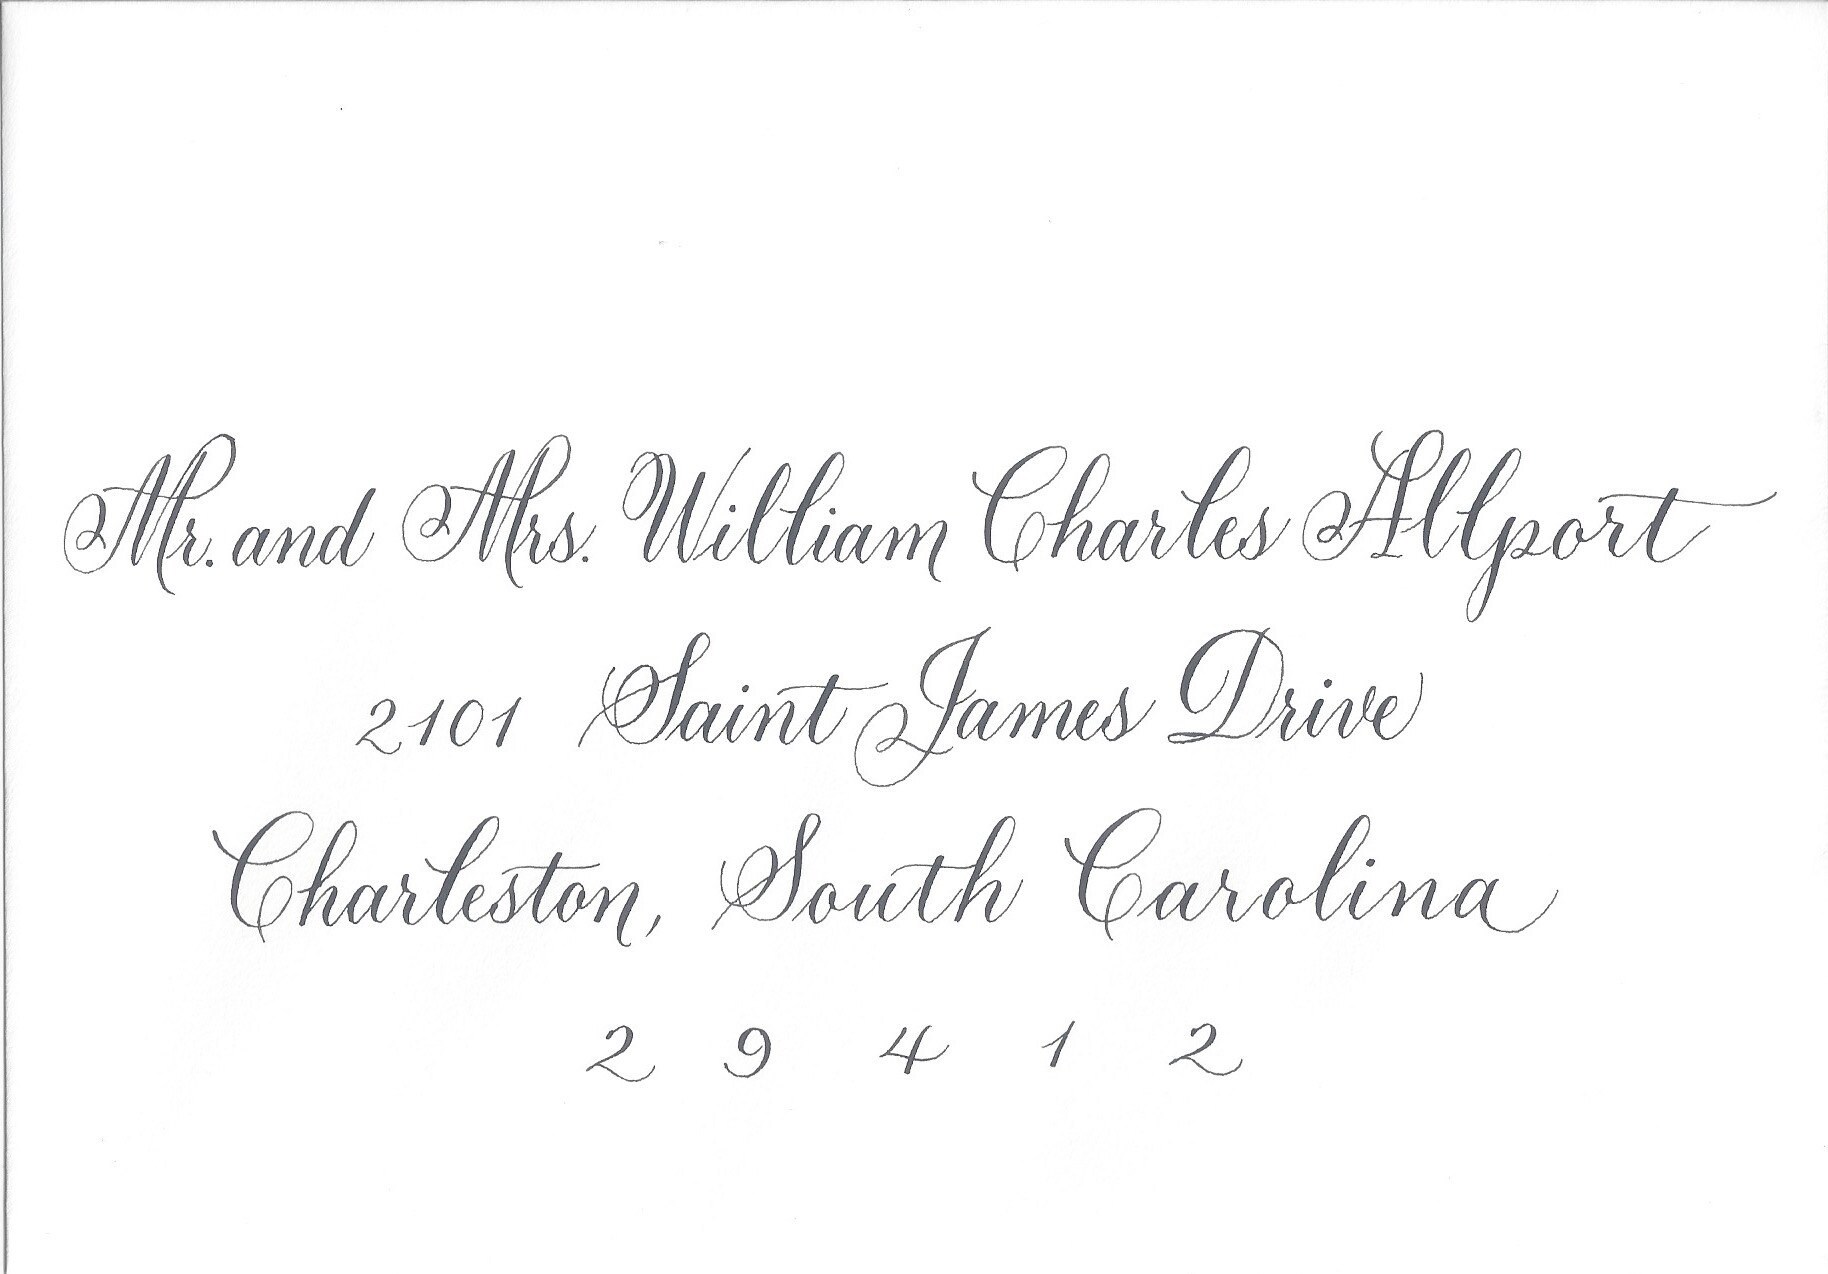 Mr. and Mrs. William Charles Allport
2101 Saint James Drive
Charleston, South Carolina
2 9 4 1 2